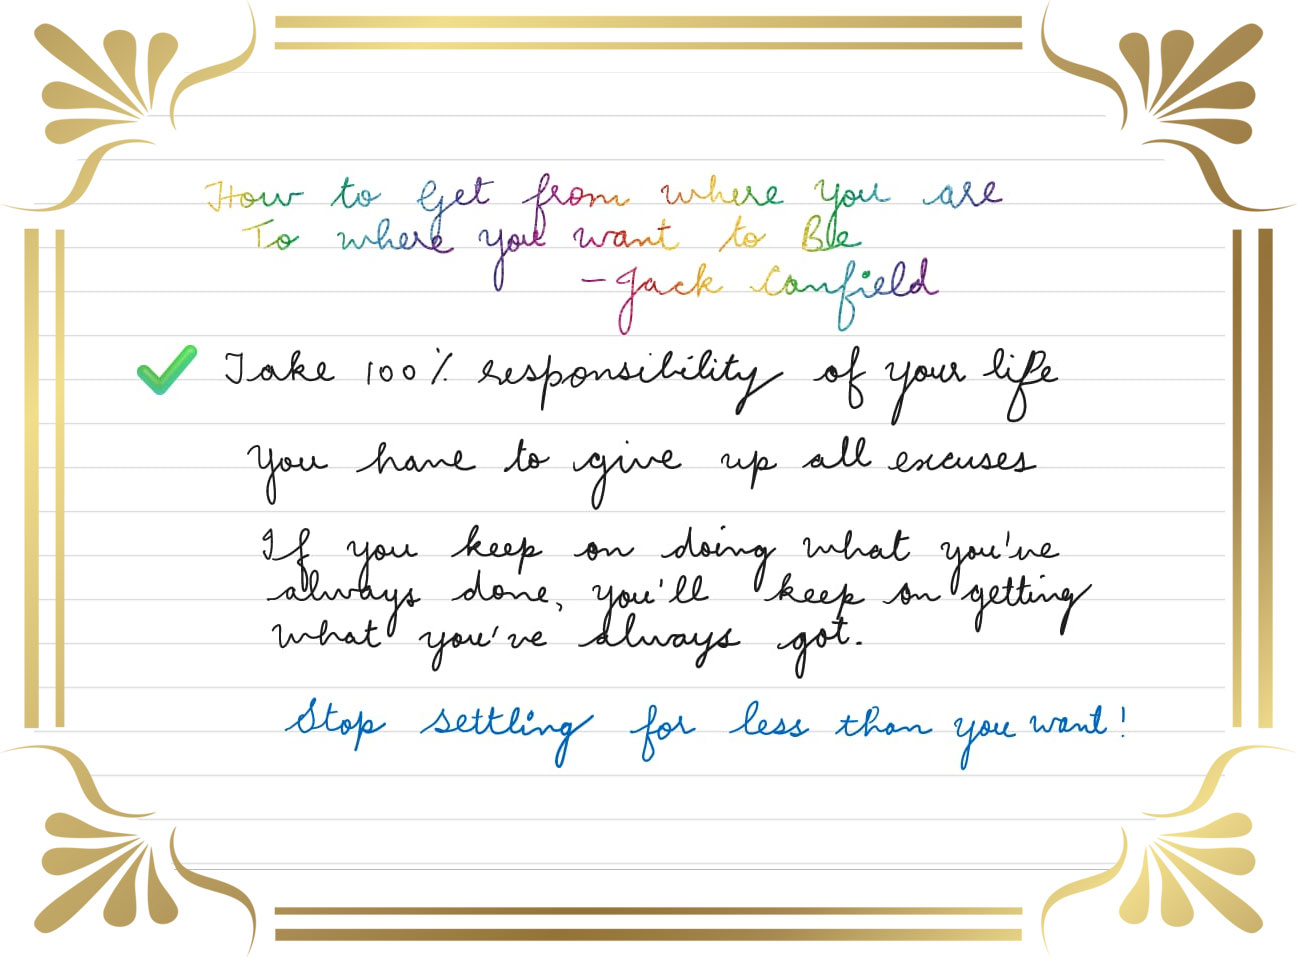 How to Get from where you are
To where you want to Be
- Jack Canfield
Take 100% responsibility of your life
You have to give up all excuses
If you keep on doing what you've
always done, you'll keep on getting
what you've always got.
Stop settling for less than you want!